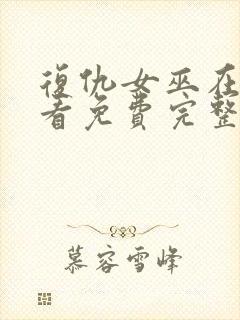 復仇女巫在
看免費完整
慕容雪峰